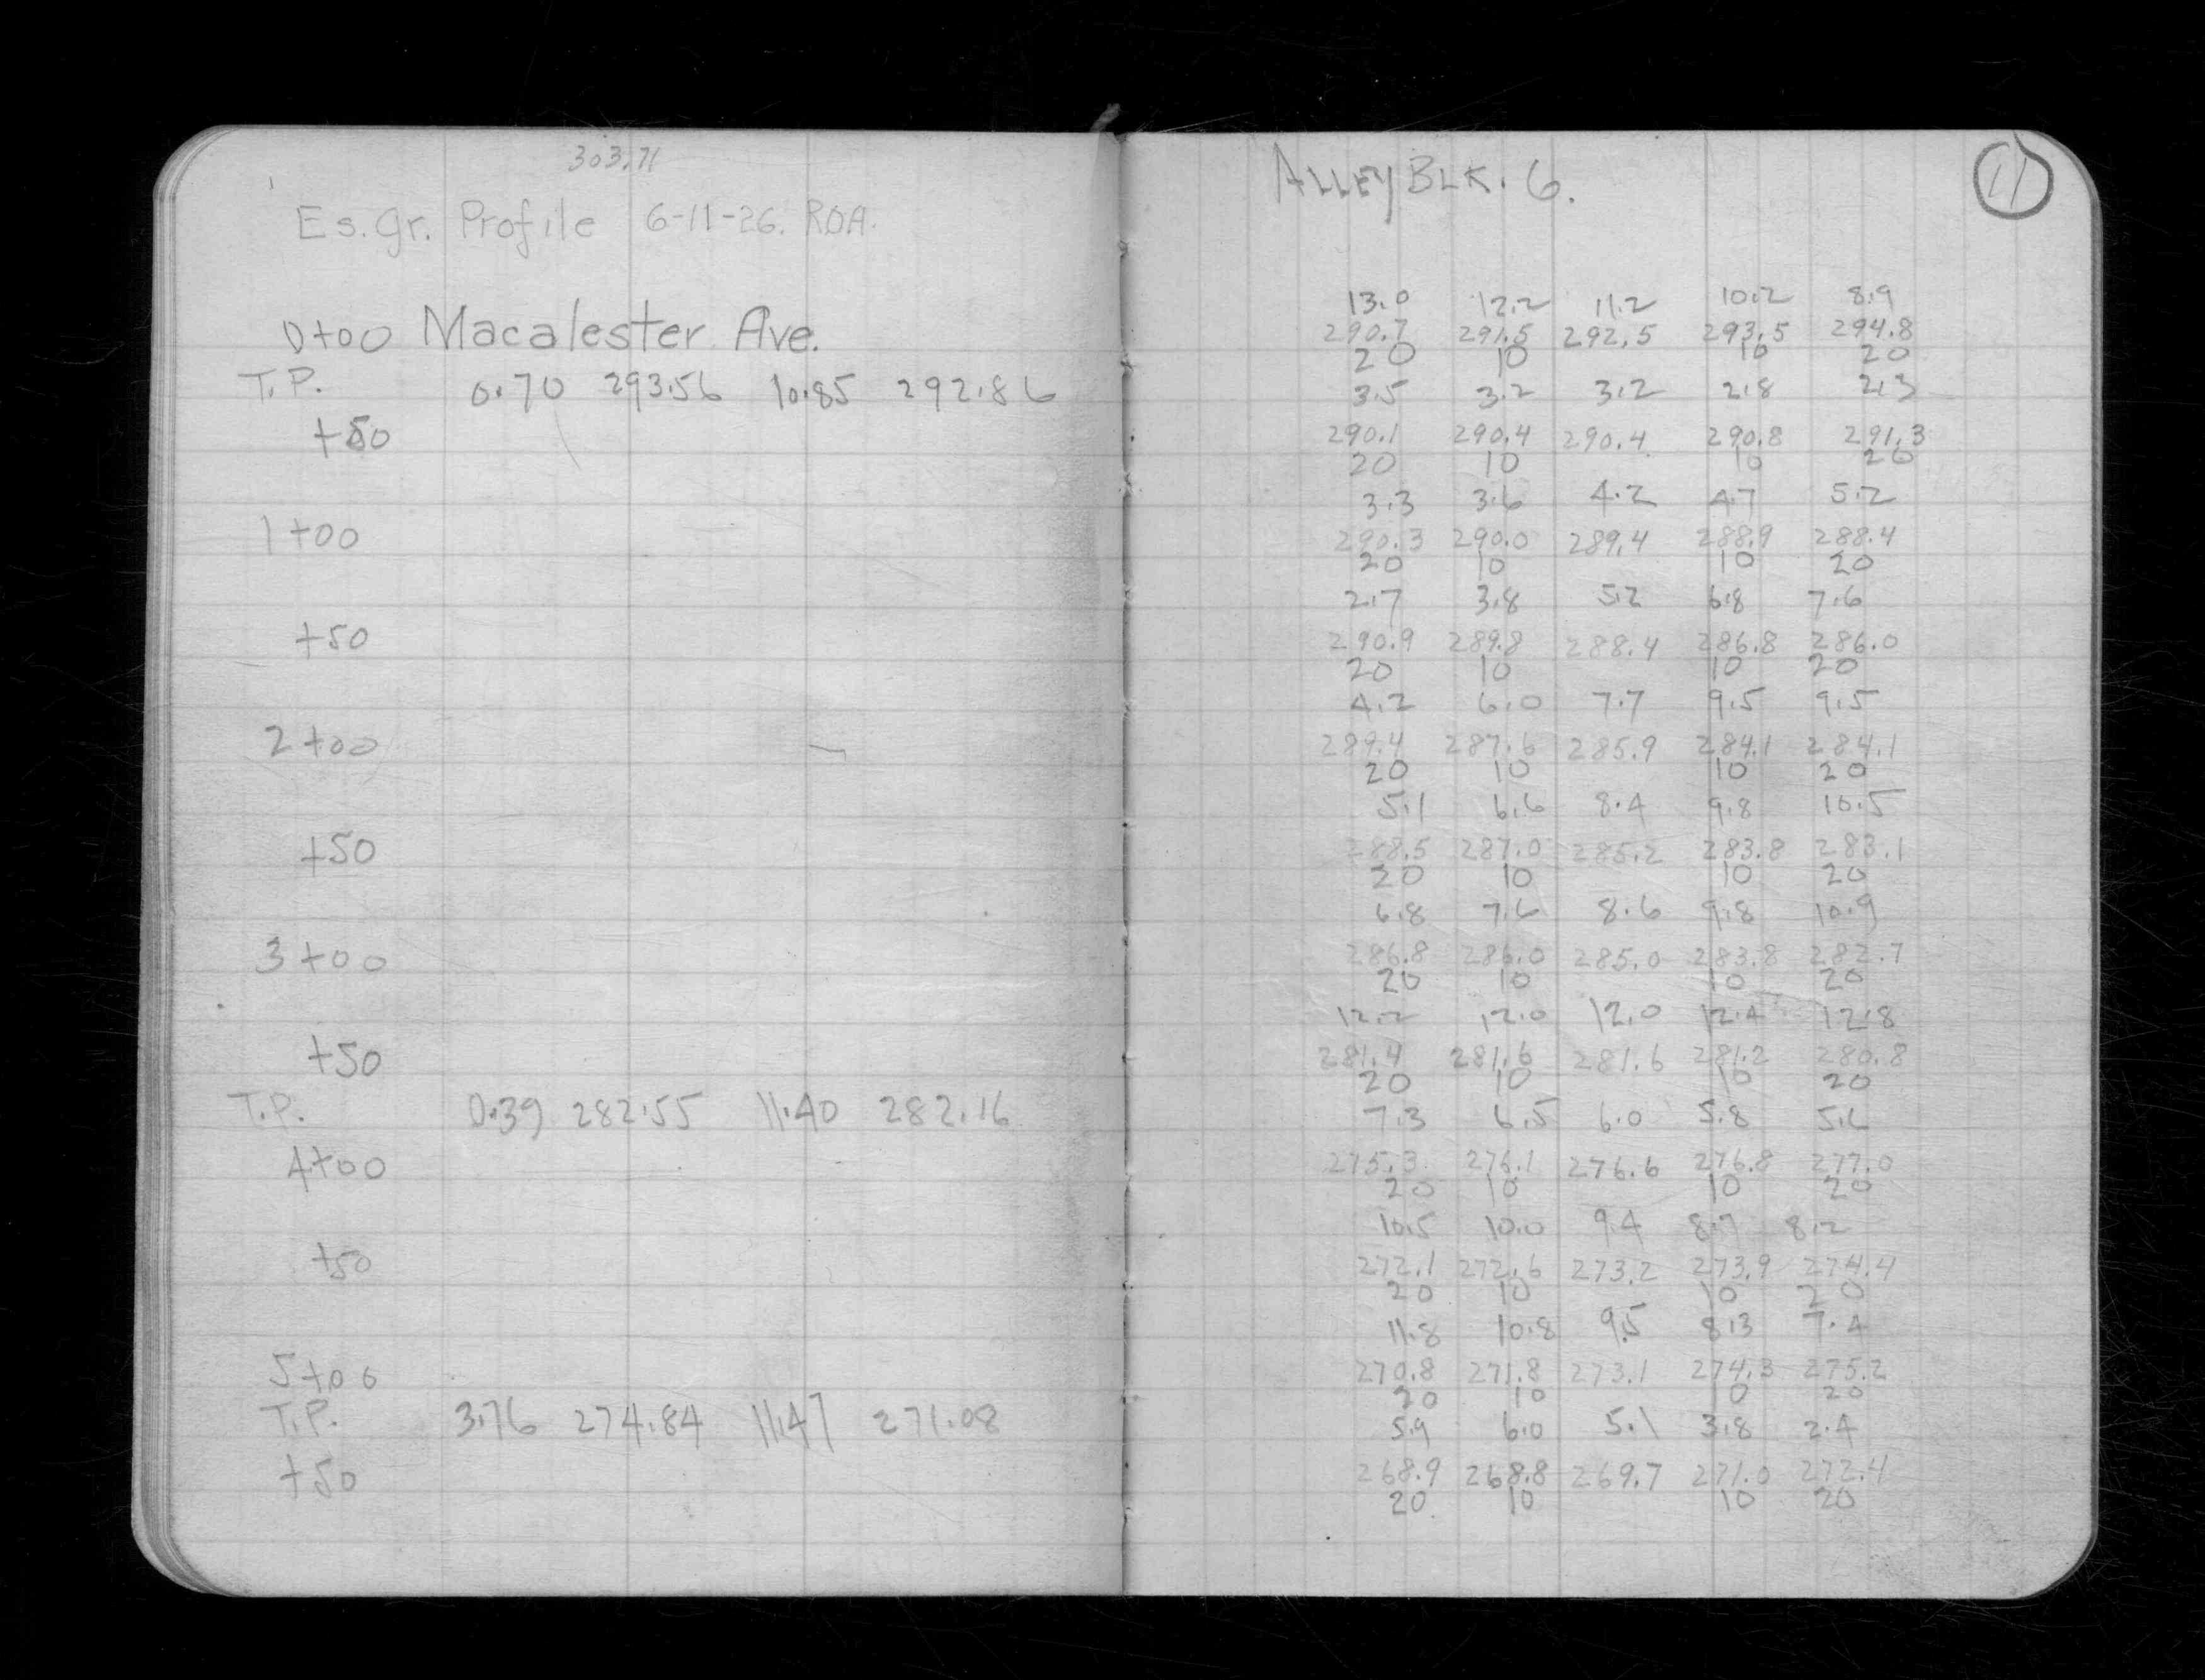 303.71
Es. Gr. Profile 6-11-26. ROA.
0+00 Macalester Ave.
T.P. 0.70 293.56 10.85 292.86
+50
1+00
+50
2+00
+50
3+00
+50
T.P. 0.39 282.55 11.40 282.16
4+00
+50
5+00
T.P. 3.76 274.84 11.47 271.08
+50
ALLEY BLK. 6.
11
13.0 12.2 11.2 10.2 8.9
290.7 291.5 292.5 293.5 294.8
20 10 10 20
3.5 3.2 3.2 2.8 2.3
290.1 290.4 290.4 290.8 291.3
20 10 10 20
3.3 3.6 4.2 4.7 5.2
290.3 290.0 289.4 288.9 288.4
20 10 10 20
2.7 3.8 5.2 6.8 7.6
290.9 289.8 288.4 286.8 286.0
20 10 10 20
4.2 6.0 7.7 9.5 9.5
289.4 287.6 285.9 284.1 284.1
20 10 10 20
5.1 6.6 8.4 9.8 10.5
288.5 287.0 285.2 283.8 283.1
20 10 10 20
6.8 7.6 8.6 9.8 10.9
286.8 286.0 285.0 283.8 282.7
20 10 10 20
12.2 12.0 12.0 12.4 12.8
281.4 281.6 281.6 281.2 280.8
20 10 10 20
7.3 6.5 6.0 5.8 5.6
275.3 276.1 276.6 276.8 277.0
20 10 10 20
10.5 10.0 9.4 8.7 8.2
272.1 272.6 273.2 273.9 274.4
20 10 10 20
11.8 10.8 9.5 8.3 7.4
270.8 271.8 273.1 274.3 275.2
20 10 10 20
5.9 6.0 5.1 3.8 2.4
268.9 268.8 269.7 271.0 272.4
20 10 10 20